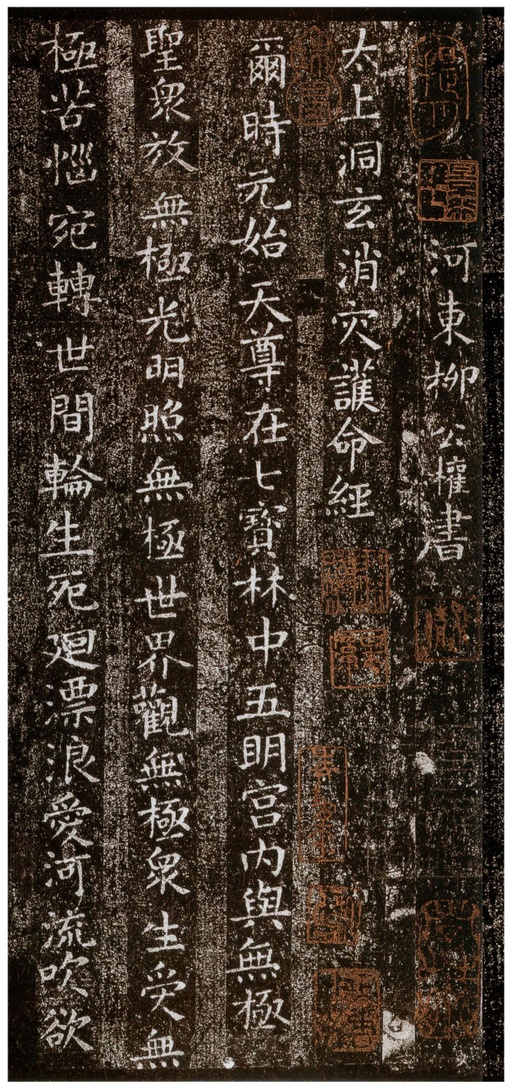 河東柳公權書
太上洞玄消灾護命經
爾時元始天尊在七寶林中五明宫內與無極
聖衆放無極光明照無極世界觀無極衆生受無
極苦惱宛轉世間輪生死廻漂浪愛河流吹欲